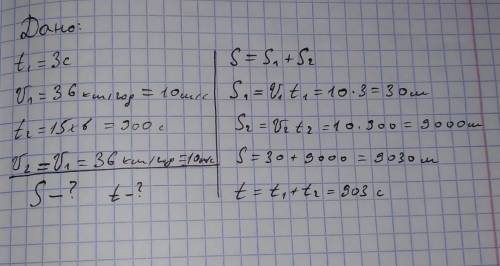 Дано:
t₁ = 3с
V₁ = 36 км/год = 10 м/с
t₂ = 15хв = 900 с
V₂ = V₁ = 36 км/год = 10 м/с
S - ? t - ?
S = S₁ + S₂
S₁ = V₁ t₁ = 10 · 3 = 30 м
S₂ = V₂ t₂ = 10 · 900 = 9000 м
S = 30 + 9000 = 9030 м
t = t₁ + t₂ = 903 с